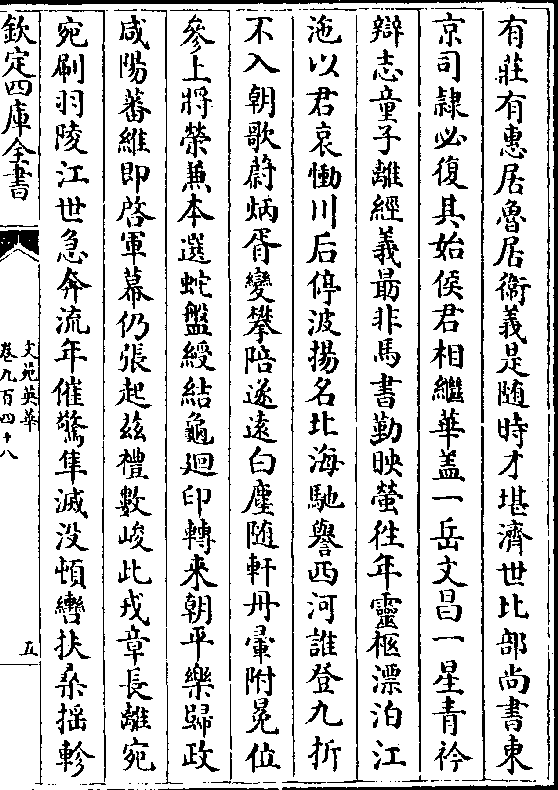 有莊有惠居魯居衞義是随時才堪濟世比部尚書東
京司隸必復其始侯君相繼華盖一岳文昌一星青衿
辯志童子離經義最非馬書勤映螢徃年靈柩漂泊江
沲以君哀慟川后停波揚名北海馳譽西河誰登九折
不入朝歌蔚炳胥變攀陪遂遠白塵随軒丹暈附冕位
參上將榮兼本選蛇盤綬結龜廻印轉来朝平樂歸政
咸陽蕃維即啓軍幕仍張起兹禮數峻此戎章長離宛
宛刷羽陵江世急奔流年催驚隼滅没頓轡扶桑揺軫
欽定四庫全書
文苑英華
卷九百四十八
五